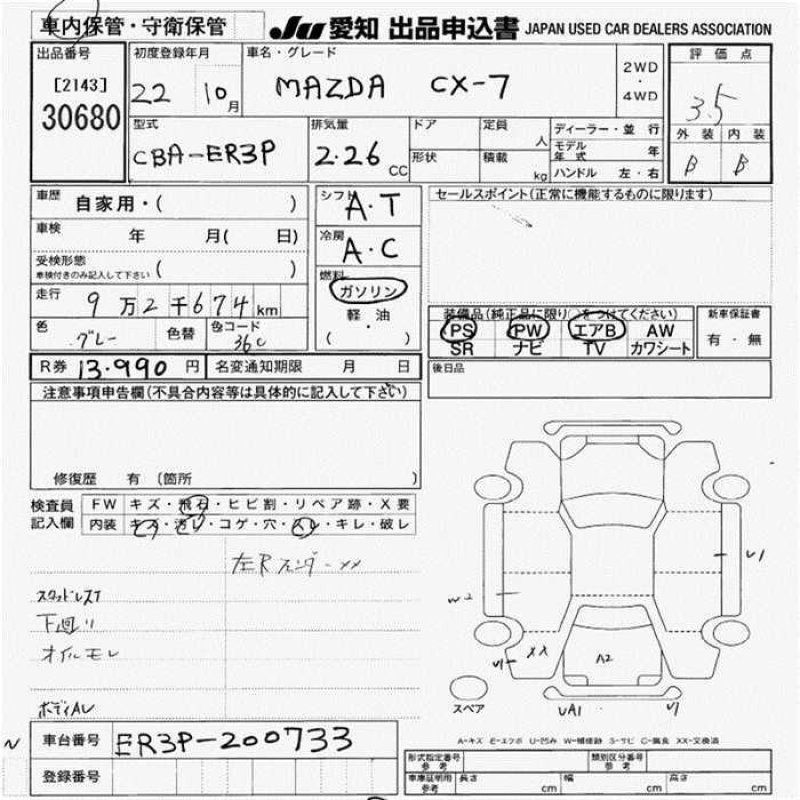 車内保管・守衛保管
JU 愛知 出品申込書 JAPAN USED CAR DEALERS ASSOCIATION
出品番号
[2143]
30680
初度登録年月
22 10月
車名・グレード
MAZDA CX-7
2WD
・
4WD
評価点
3.5
外装 内装
B B
型式
CBA-ER3P
排気量
2.26 CC
ドア
形状
定員 人
積載 kg
ディーラー・並行
モデル年式 年
ハンドル 左・右
車歴 自家用・( )
車検 年 月( 日)
受検形態
車検付きのみ記入して下さい ( )
走行 9万2千674km
色 グレー 色替 色コード 36C
シフト A・T
冷房 A・C
燃料
ガソリン
軽油
( )
セールスポイント(正常に機能するものに限ります)
装備品(純正品に限り○をつけてください)
PS PW エアB AW
SR ナビ TV カワシート
新車保証書
有・無
R券 13.990円 名変通知期限 月 日
後日品
注意事項申告欄(不具合内容等は具体的に記入して下さい)
修復歴 有 (箇所 )
検査員
記入欄
FW キズ・飛石・ヒビ割・リペア跡・X要
内装 キズ・汚レ・コゲ・穴・スレ・キレ・破レ
左Rフェンダー××
スタッドレスT
下廻リ
オイルモレ
ボディAU
U1
W2
U1
XX
A2
UA1
U1
スペア
A-キズ E-エクボ U-凹み W-補修跡 S-サビ C-腐食 XX-交換済
N
車台番号 ER3P-200733
登録番号
形式指定番号
参考
類別区分番号
参考
車庫証明用
参考
長さ cm 幅 cm 高さ cm